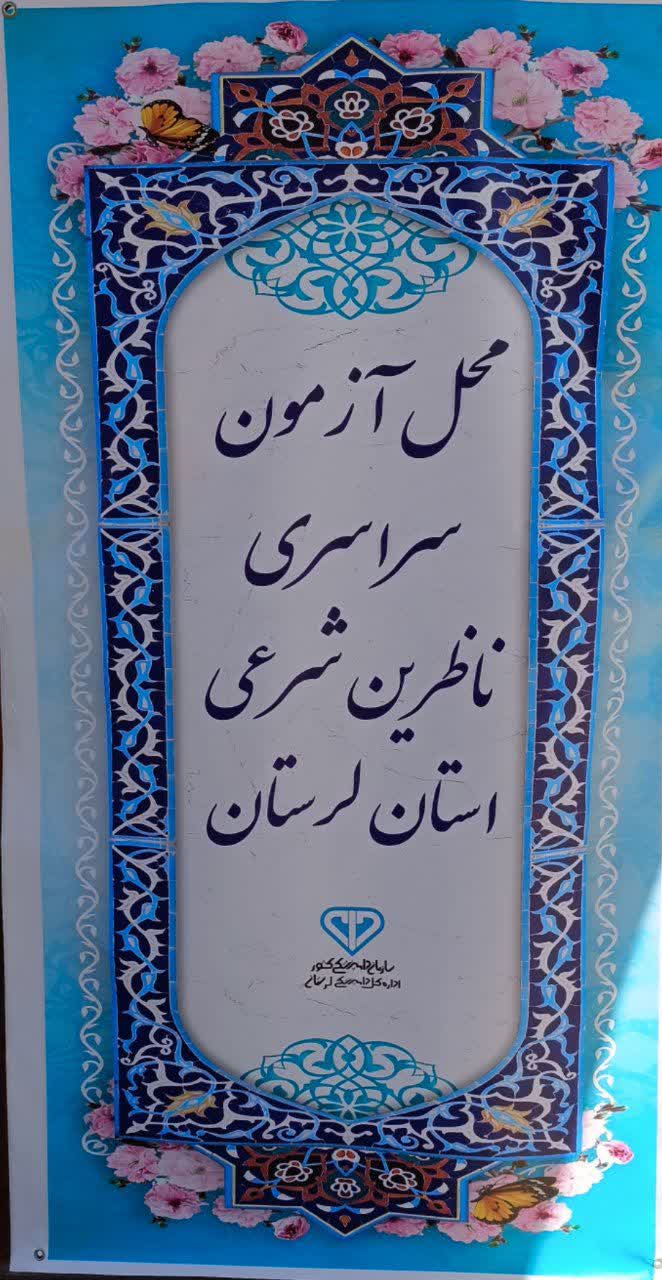 محل آزمون
سراسری
ناظرین شرعی
استان لرستان
سازمان دامپزشکی کشور
اداره کل دامپزشکی لرستان